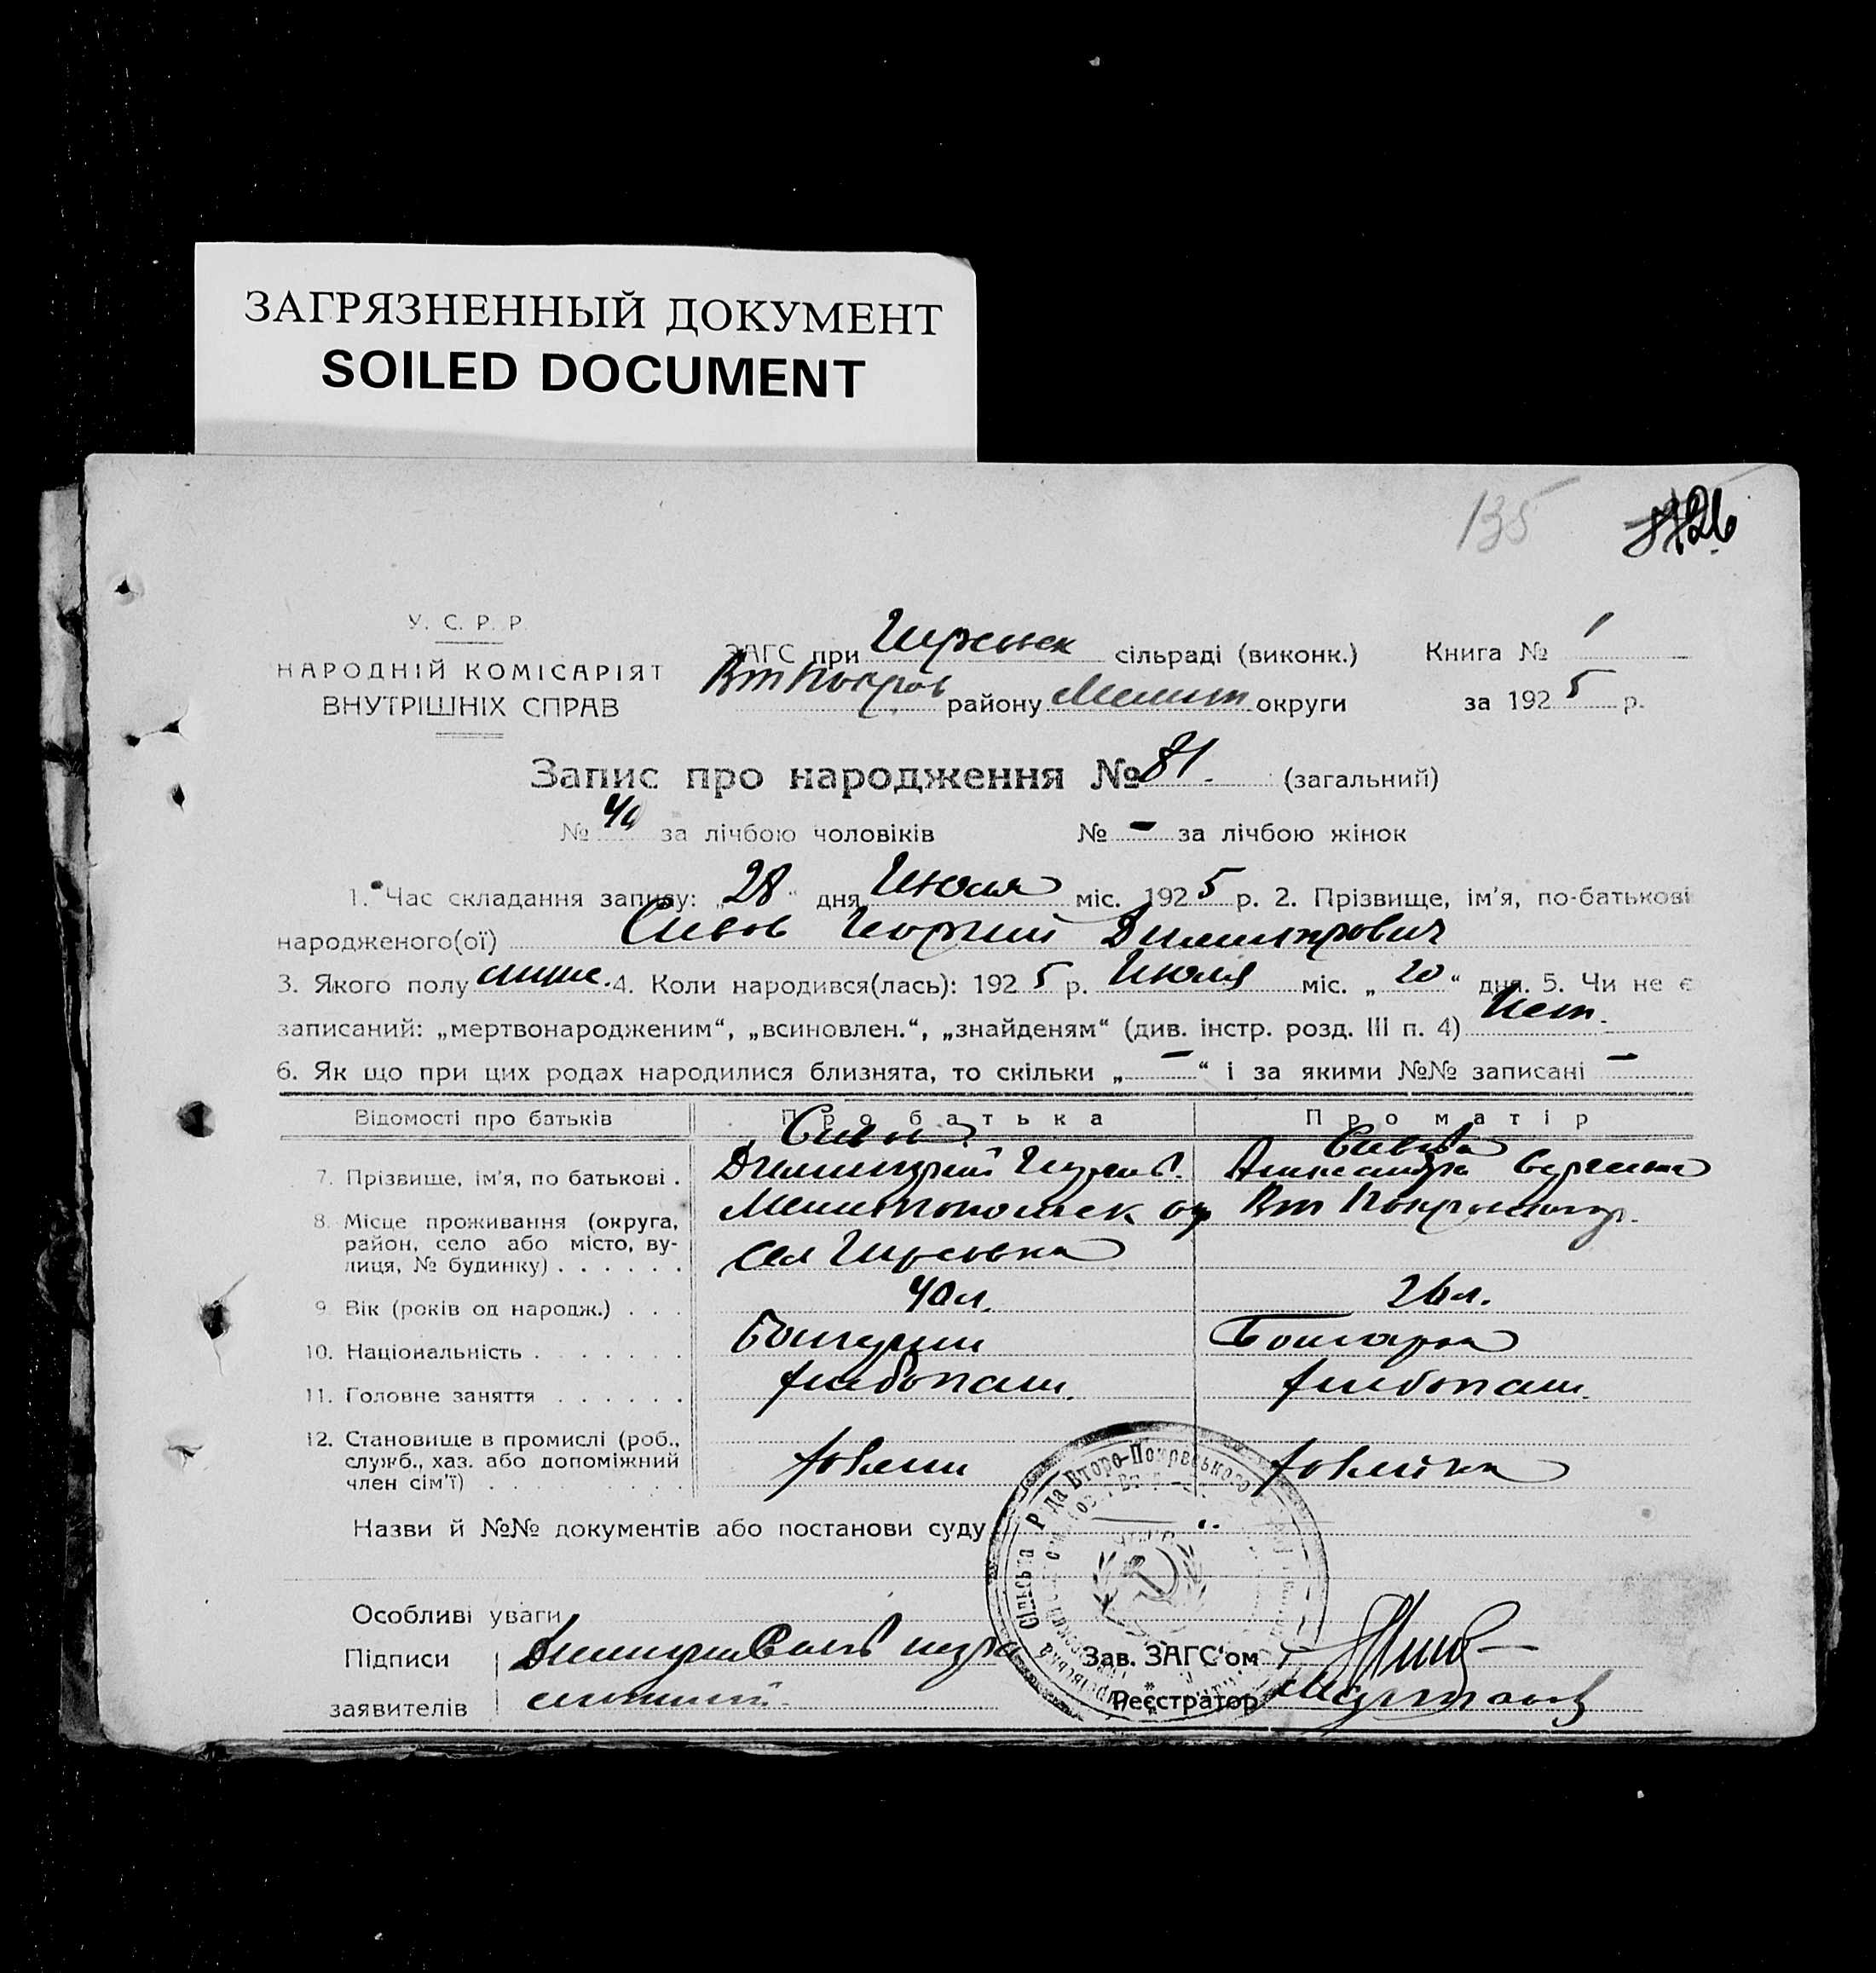 ЗАГРЯЗНЕННЫЙ ДОКУМЕНТ
SOILED DOCUMENT
135
126
У. С. Р. Р.
НАРОДНІЙ КОМІСАРІЯТ
ВНУТРІШНІХ СПРАВ
ЗАГС при сільраді (виконк.) Книга № 1
Вт Покров району Мелит округи за 1925 р.
Запис про народження № 81. (загальний)
№ 40 за лічбою чоловіків № - за лічбою жінок
1. Час складання запису: „28“ дня Июля міс. 1925 р. 2. Прізвище, ім'я, по-батькові
народженого(ої) Сивов Георгий Димитрович
3. Якого полу 4. Коли народився(лась): 1925 р. Июля міс. „20“ дня. 5. Чи не є
записаний: „мертвонародженим“, „всиновлен.“, „знайденям“ (див. інстр. розд. III п. 4) Нет.
6. Як що при цих родах народилися близнята, то скільки „-“ і за якими №№ записані -
Відомості про батьків Про батька Про матір
Сивов Сивова
7. Прізвище, ім'я, по батькові . Димитрий Александра
8. Місце проживання (округа, Мелитопольск ок Вт Покровск
район, село або місто, ву-
лиця, № будинку) . . . . . . сел
9. Вік (років од народж.) . . . 40 л. 26 л.
10. Національність . . . . . . . Болгарин Болгарка
11. Головне заняття . . . . . . хлебопаш. хлебопаш.
12. Становище в промислі (роб.,
служб., хаз. або допоміжний хозяин хозяйка
член сім'ї) . . . . . . . . . .
Назви й №№ документів або постанови суду
Сільська Рада Второ-Покровського
Особливі уваги
Підписи Димитрий Сивов
заявителів
Зав. ЗАГС'ом
Реєстратор